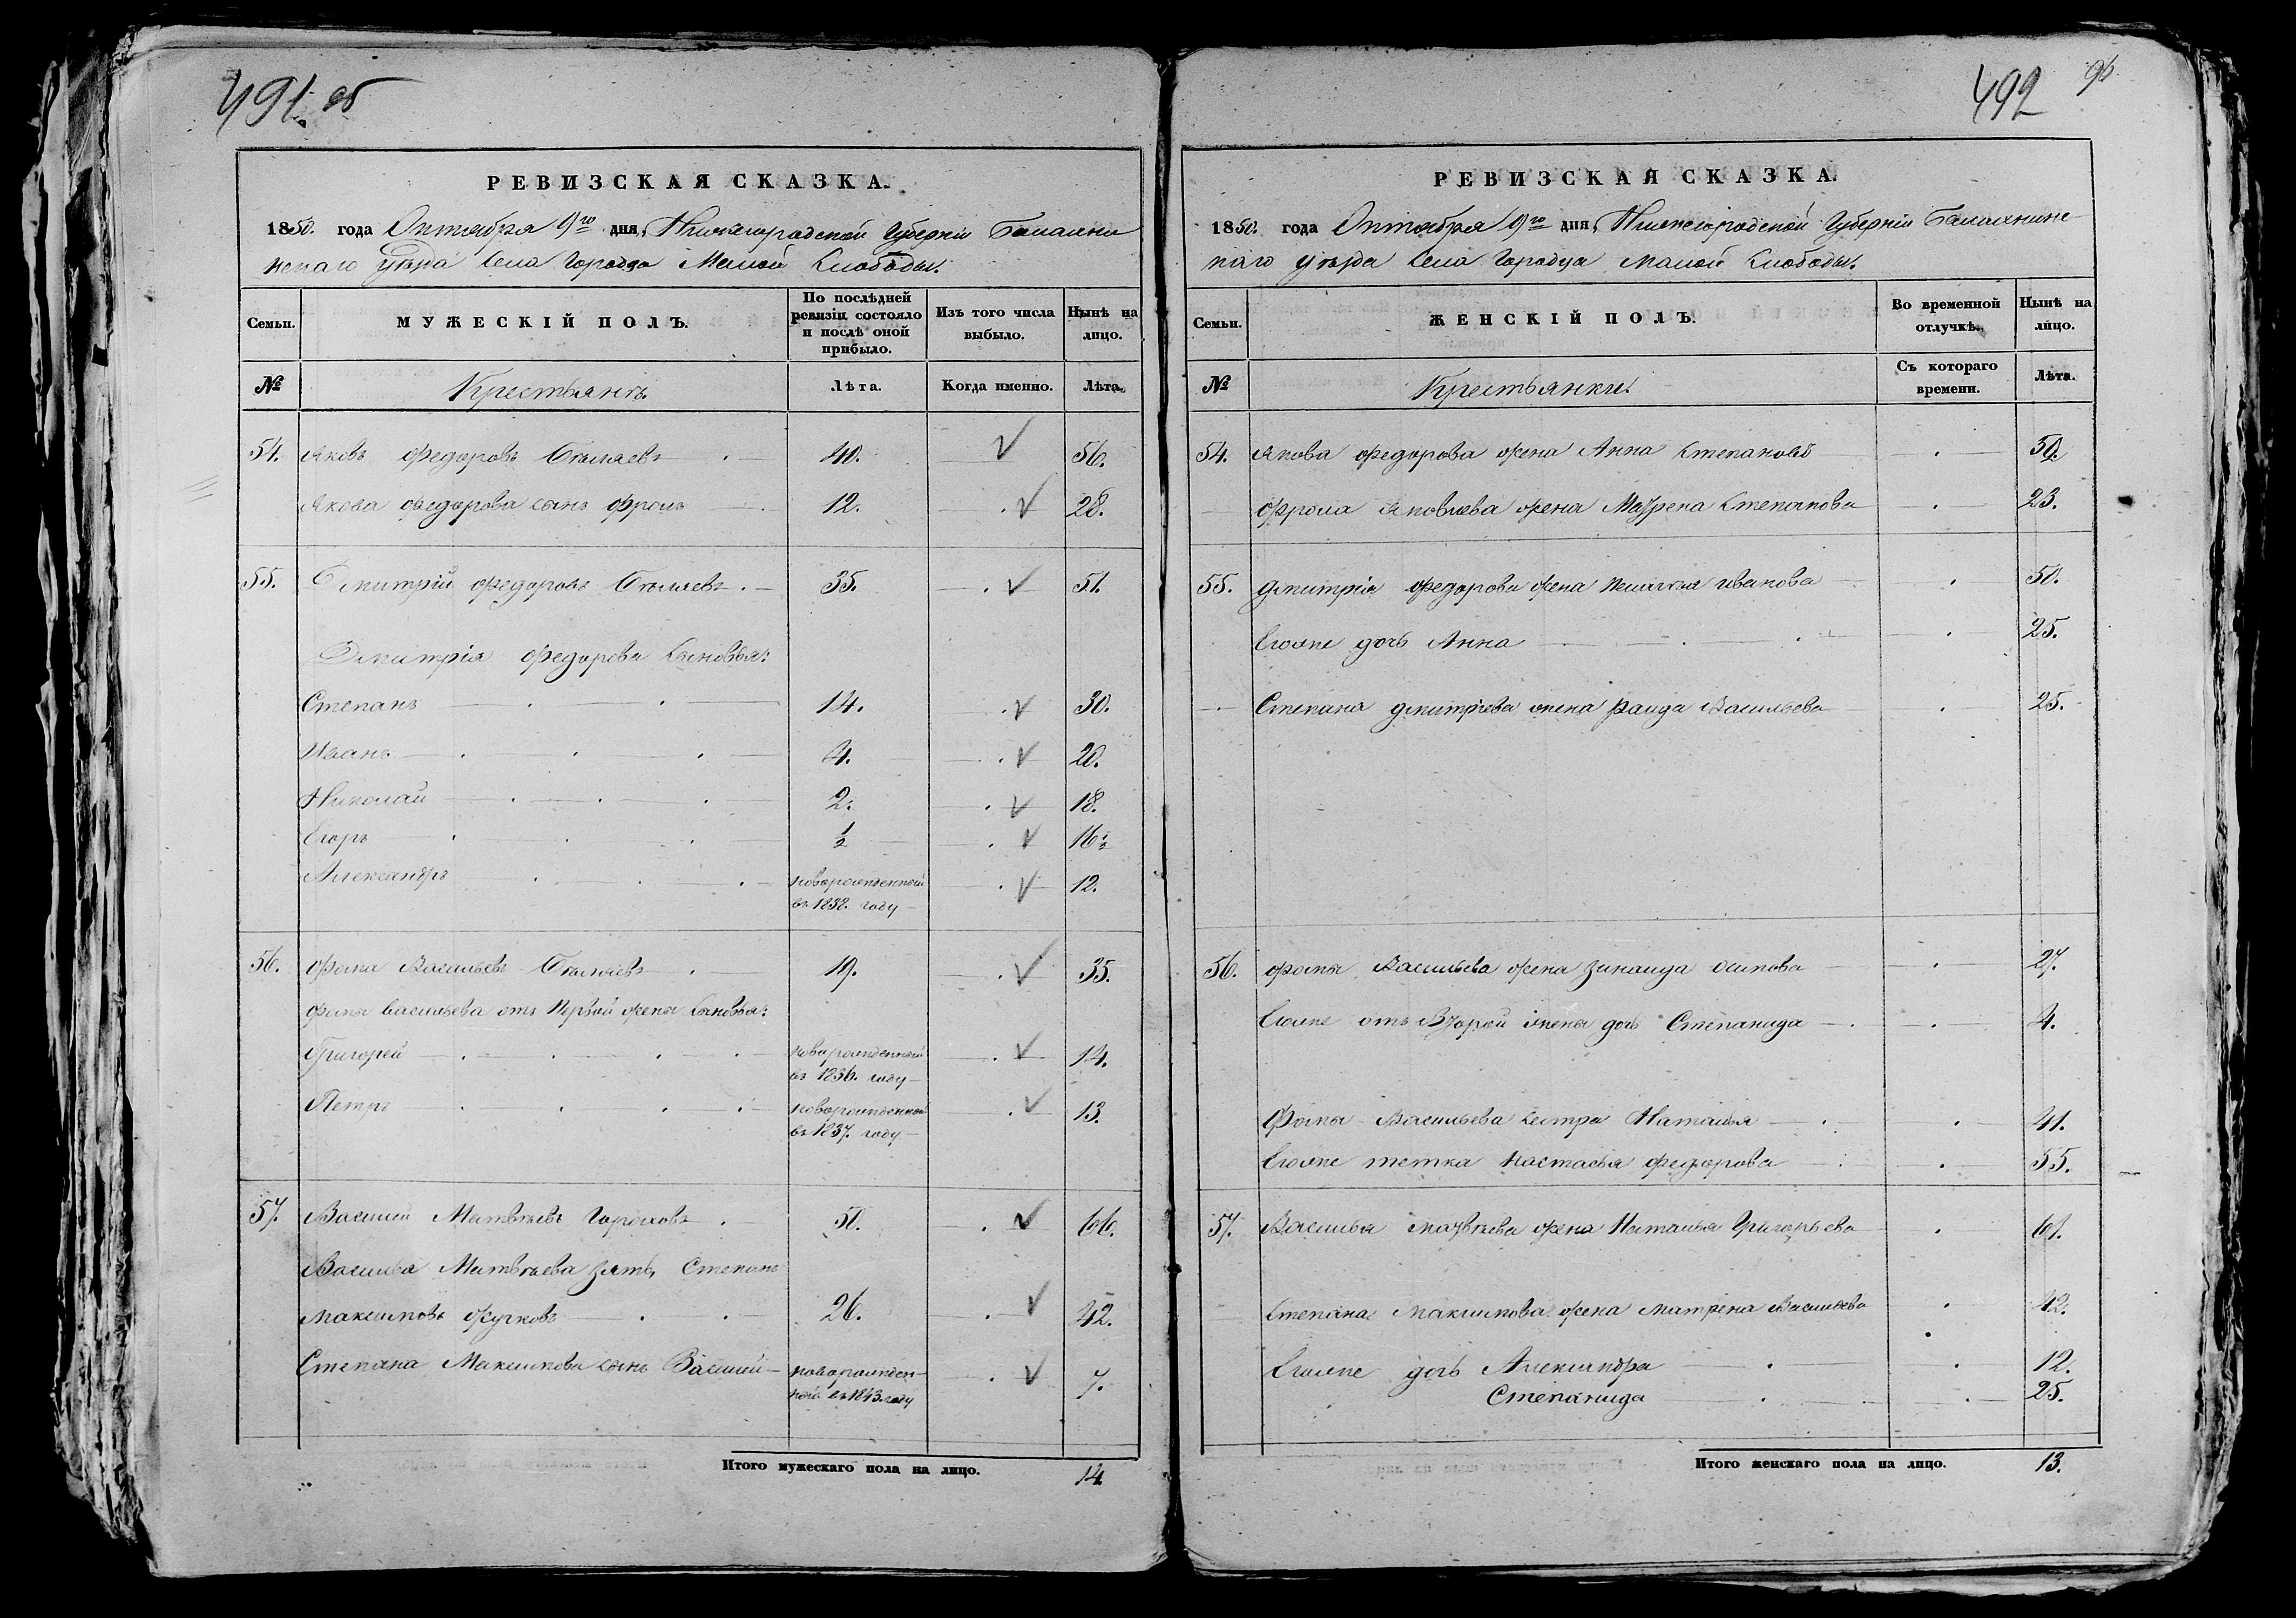 491 об
РЕВИЗСКАЯ СКАЗКА.
1850. года Октября 9го дня, Нижегородской Губерніи Балахни
нскаго уѣзда Села Городца Малой Слободы.
Семьи.
МУЖЕСКІЙ ПОЛЪ.
По послѣдней
ревизіи состояло
и послѣ оной
прибыло.
Изъ того числа
выбыло.
Нынѣ на
лицо.
№
Крестьянъ.
Лѣта.
Когда именно.
Лѣта.
54. Яковъ Федоровъ Бѣляевъ 40. 56.
Якова Федорова сынъ Фролъ 12. 28.
55. Дмитрій Федоровъ Бѣляевъ 35. 51.
Дмитрія Федорова сыновья:
Степанъ 14. 30.
Иванъ 4. 20.
Николай 2. 18.
Егоръ ½ 16½
Александръ новорожденный 12.
въ 1838. году
56. Фома Васильевъ Бѣляевъ 19. 35.
Фомы Васильева отъ Первой жены сыновья:
Григорей новорожденный 14.
въ 1836. году
Петръ новорожденный 13.
въ 1837. году
57. Василий Матвѣевъ Гороховъ 50. 66.
Василья Матвѣева зять Степанъ
Максимовъ Жутковъ 26. 42.
Степана Максимова сынъ Василий новорожден- 7.
ной въ 1843. году
Итого мужескаго пола на лицо. 14
492
РЕВИЗСКАЯ СКАЗКА.
1850. года Октября 9го дня, Нижегородской Губерніи Балахнинс
каго уѣзда Села Городца Малой Слободы.
Семьи.
ЖЕНСКІЙ ПОЛЪ.
Во временной
отлучкѣ.
Нынѣ на
лицо.
№
Крестьянки.
Съ котораго
времени.
Лѣта.
54. Якова Федорова жена Анна Степанова
Фрола Яковлева жена Матрена Степанова 23.
55. Дмитрія Федорова жена Пелагея Иванова 50.
Егоже дочь Анна 25.
Степана Дмитріева жена Раида Васильева 25.
56. Фомы Васильева жена Зинаида Осипова 27.
Егоже отъ Второй жены дочь Степанида 4.
Фомы Васильева сестра Наталья 41.
Егоже тетка Настасья Федорова 55.
57. Василья Матвѣева жена Наталья Григорьева 61.
Степана Максимова жена Матрена Васильева 42.
Егоже дочь Александра 12.
Степанида 25.
Итого женскаго пола на лицо. 13.